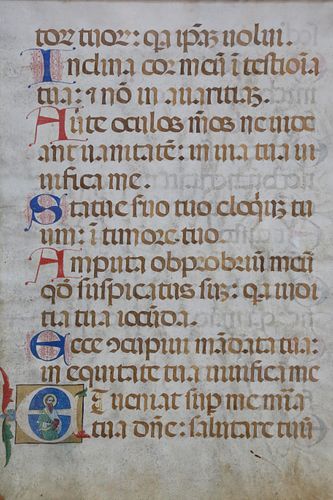 tor tuor: q̃a ip̃az uolui.
Inclina cor meũ ĩ testiõia
tua: & nõ in auaritiaz.
Auĩte oculos m̃os ne uide
ant uanitatẽ: in uia tua ui
uifica me.
Statue suo tuo eloq̃uz tu
um: ĩ timore tuo.
Amputa obprobriũ meũ
qõ suspicatus suz: q̃a iudi
tia tua iocũda.
Ecce ɔcupiui mãdata tua:
in equitate tua uiuifica me
Et ueniat sup̃ me mĩa
tua dñe: salutare tuũ